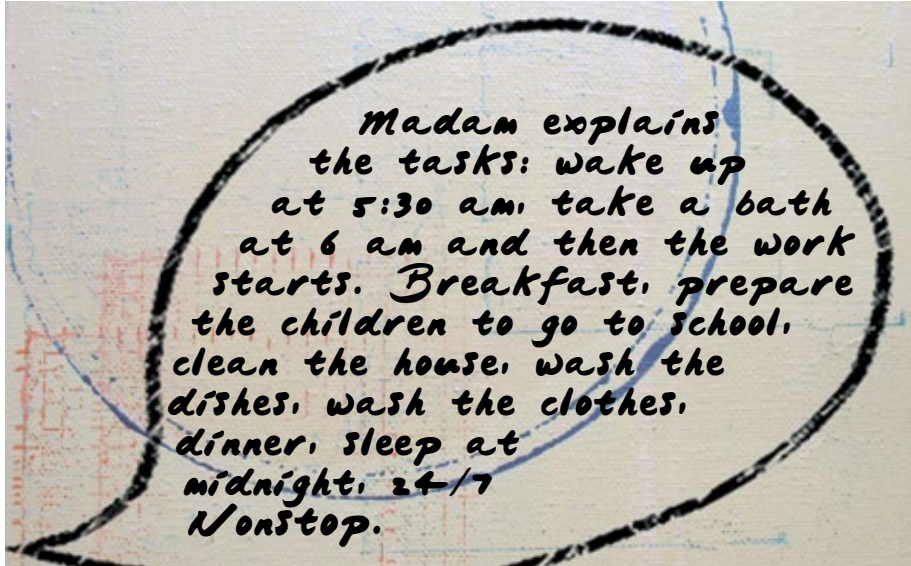 Madam explains
the tasks: wake up
at 5:30 am, take a bath
at 6 am and then the work
starts. Breakfast, prepare
the children to go to school,
clean the house, wash the
dishes, wash the clothes,
dinner, sleep at
midnight, 24/7
Nonstop.